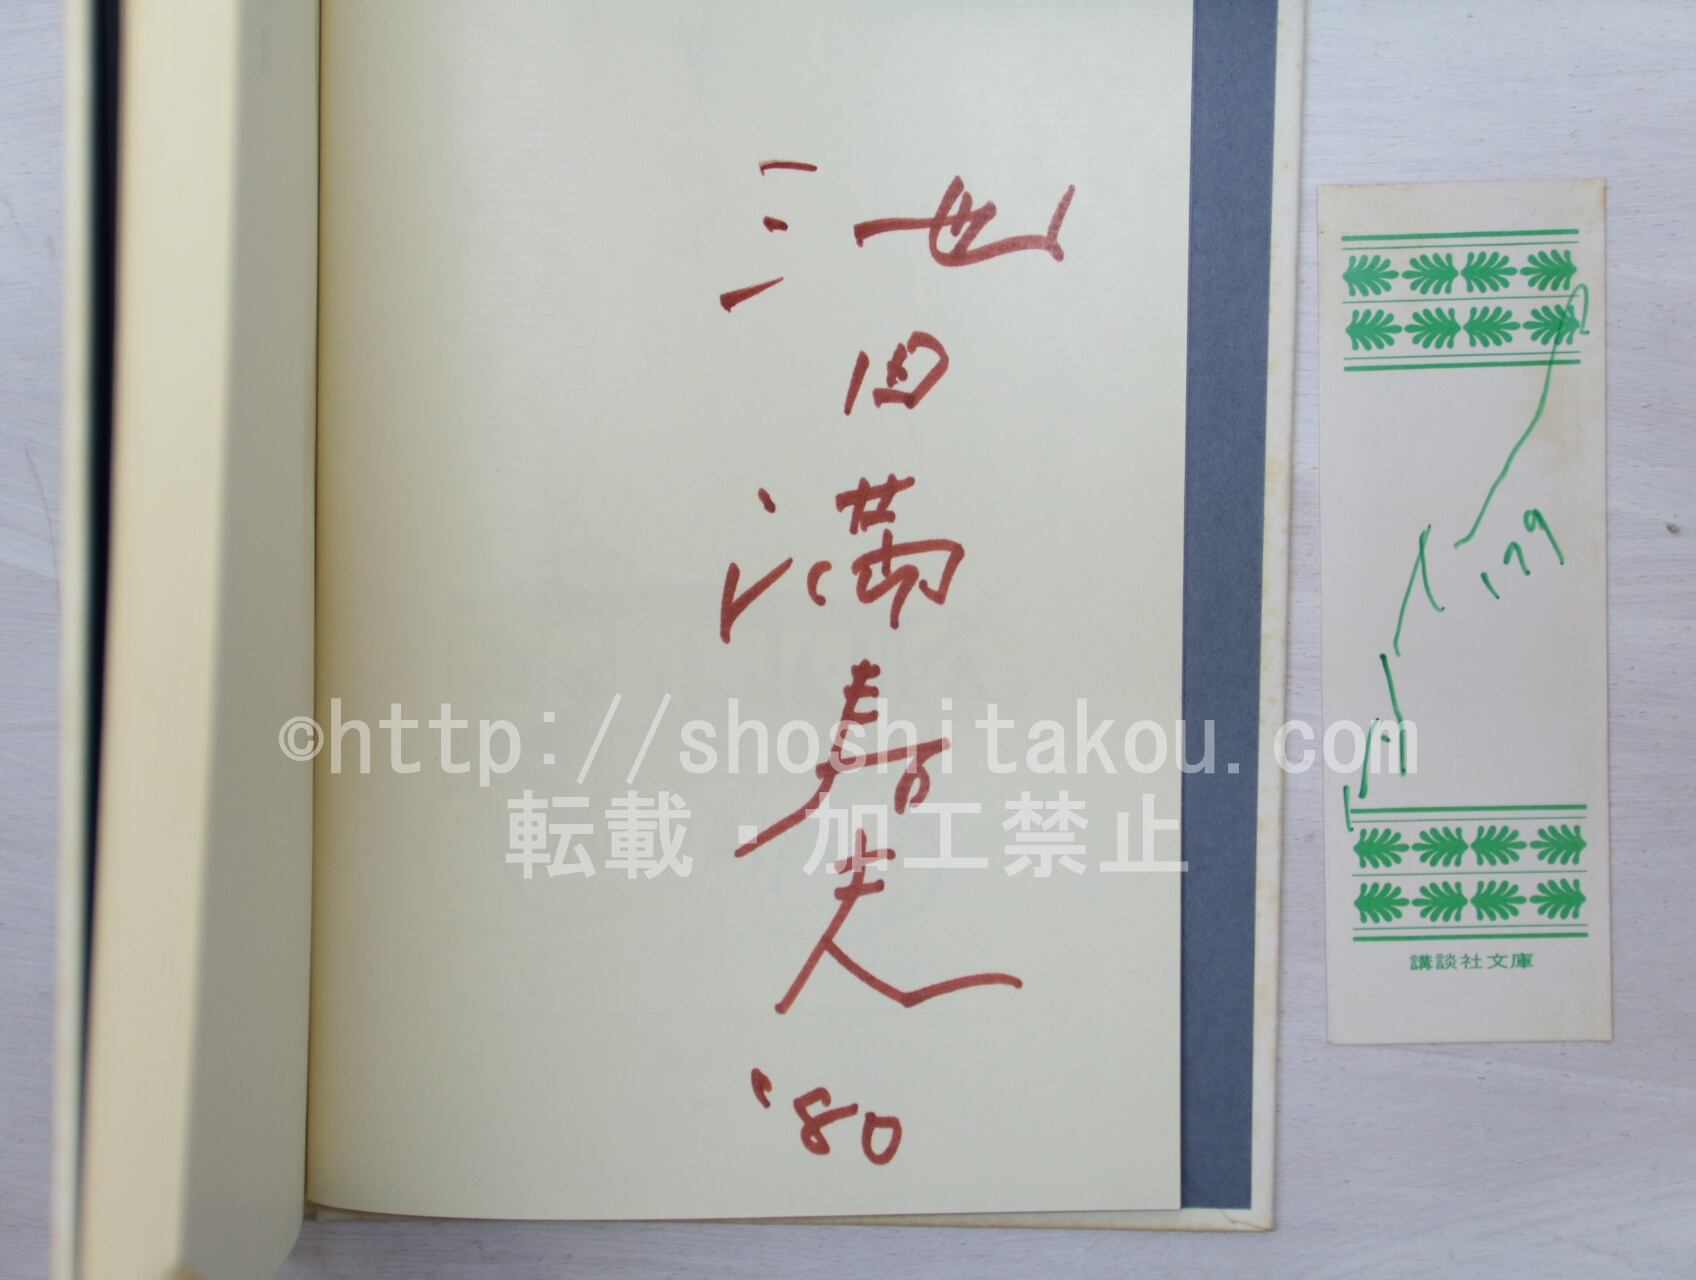 池田満寿夫
'80
179
講談社文庫
©http://shoshitakou.com
転載・加工禁止